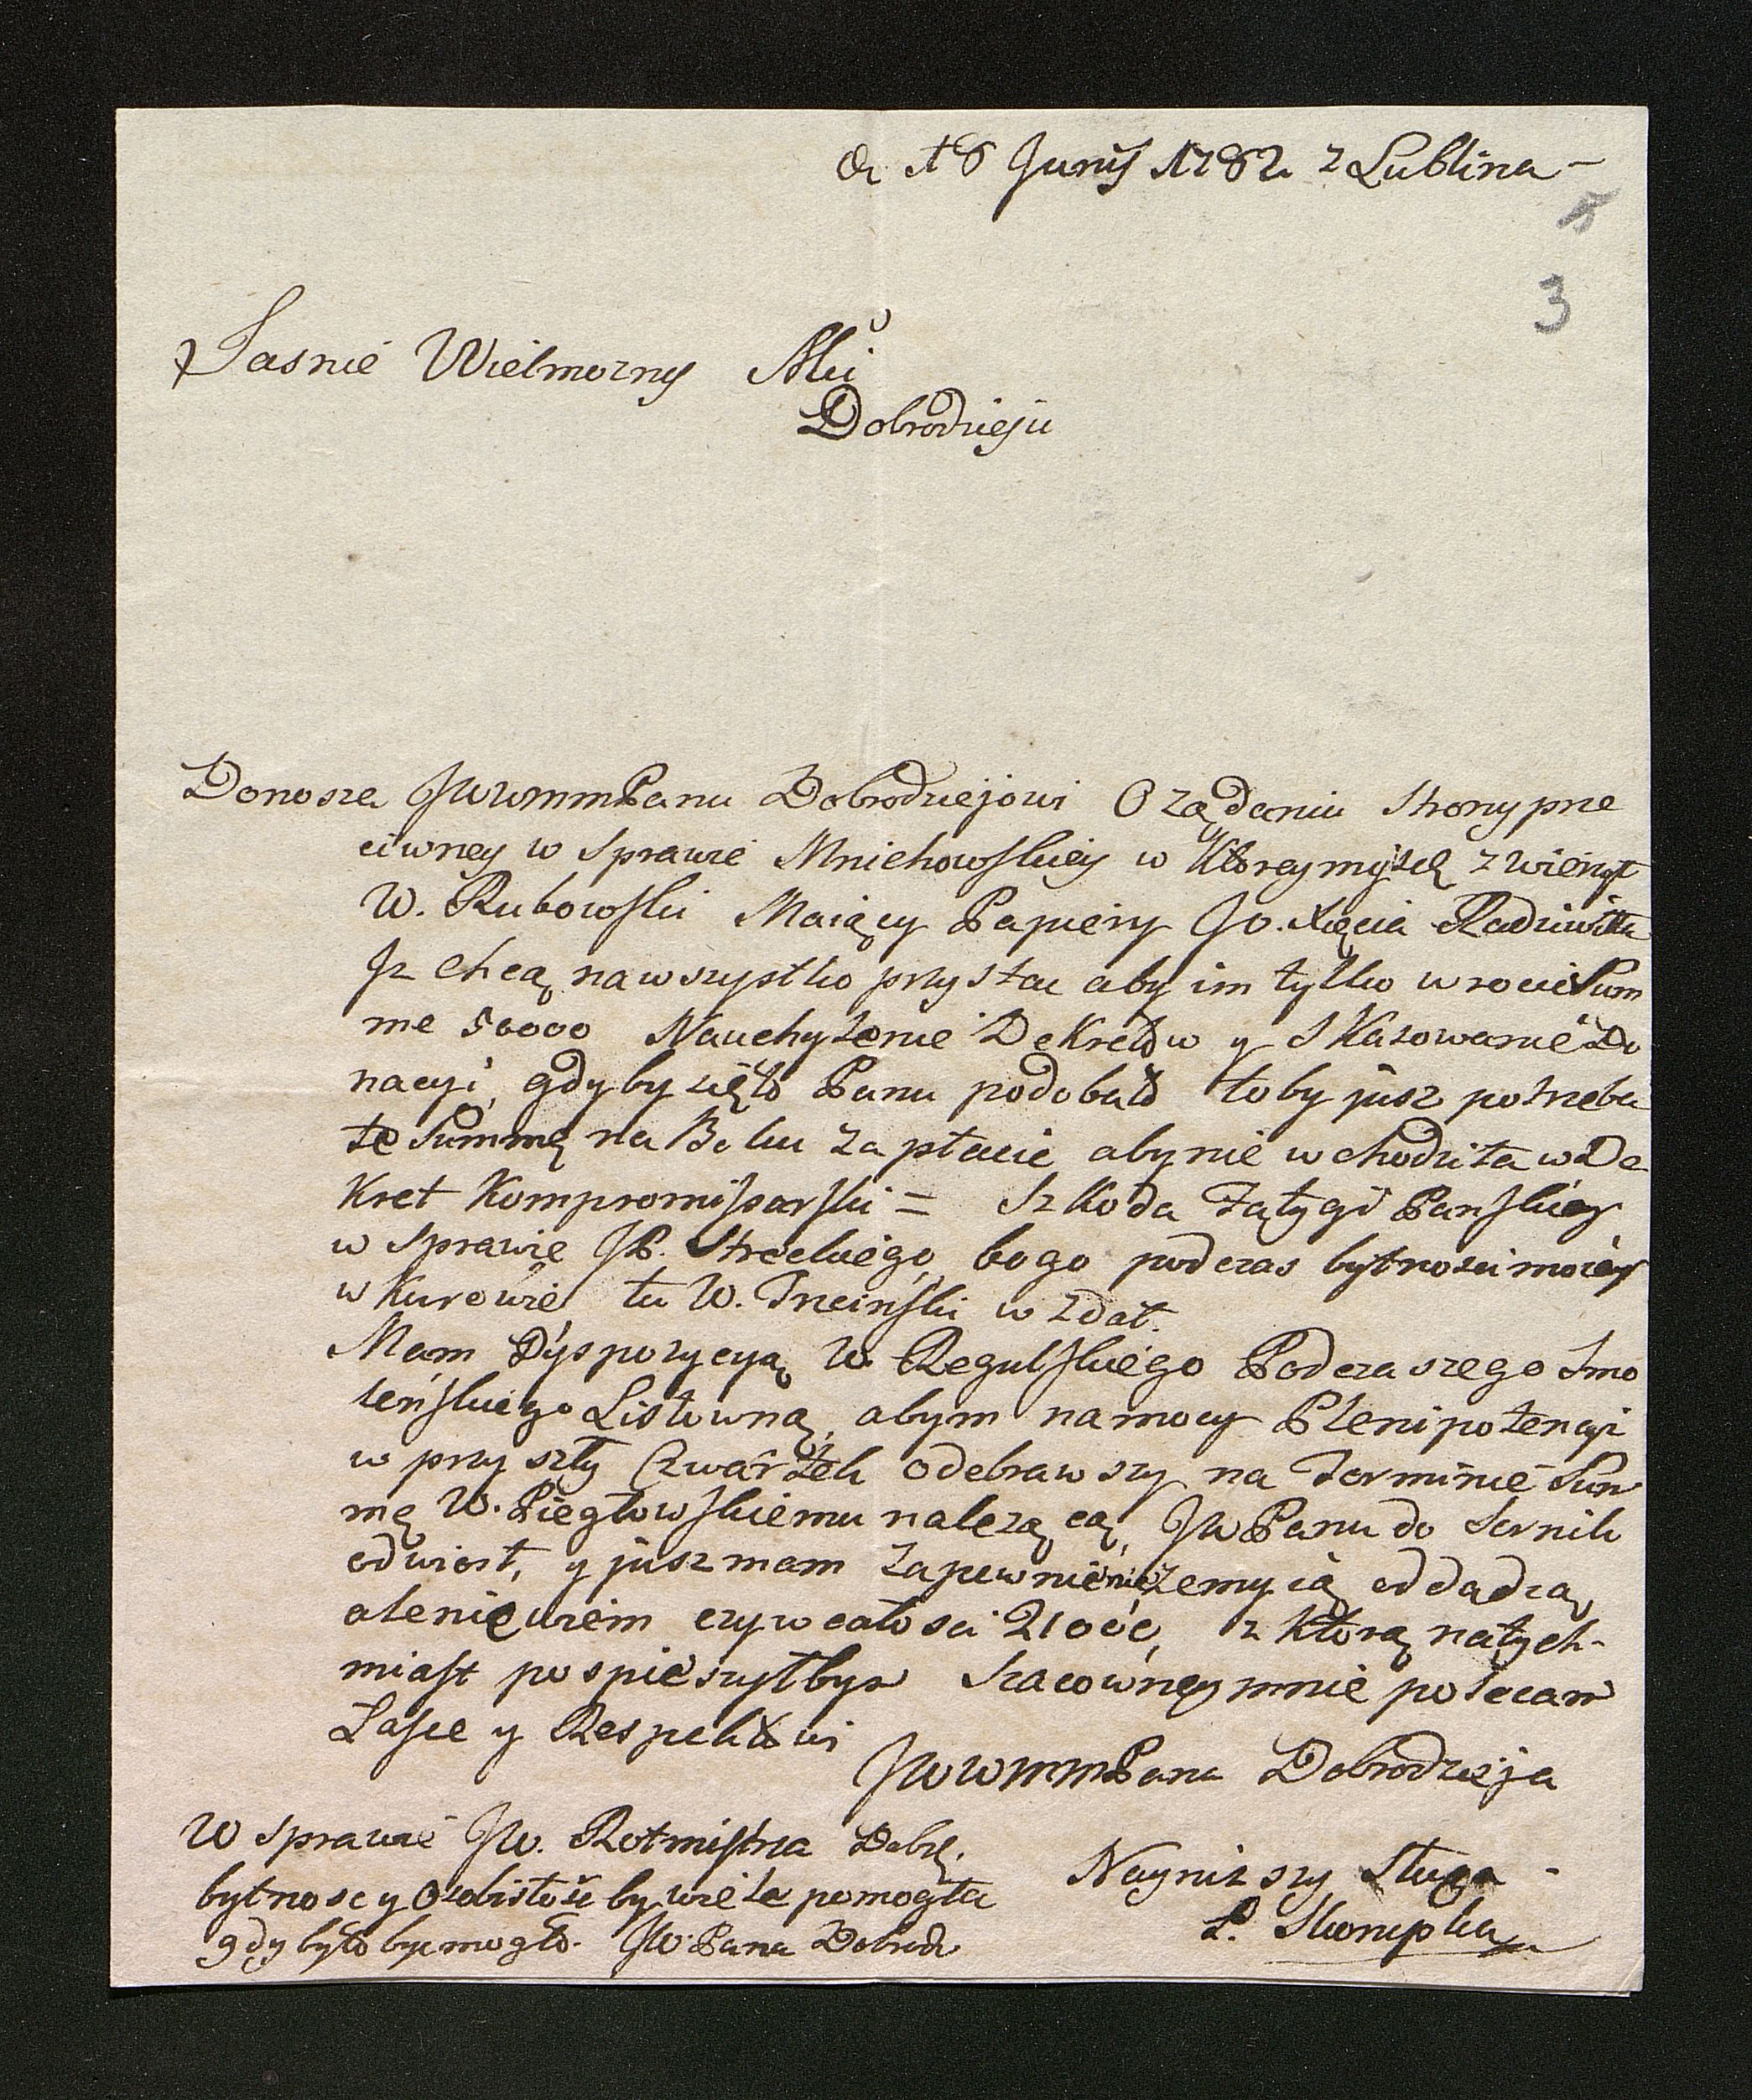 d. 18 Junij 1782 z Lublina -
3
Jasnie Wielmozny Mci
Dobrodzieju
Donosze JWWMMPanu Dobrodziejowi O ządaniu Strony prze
ciwney w Sprawie Mniehowskiey w Ktorey myslę
W. Rubowski Maiący Papiery JO. Xięcia Radziwiłła
Jz chcą na wszystko przystac aby im tylko wrocic Sum
me 50000 Nauchylenie Dekretow y Skasowanie Do
nacyi, gdyby się to Panu podobało toby jusz potrzeba
te Summę na Boku zapłacic aby nie wchodziła w De
kret Kompromissarski = Szkoda Fatygi Panskiey
w Sprawie JP. Strzeckiego, bo go podczas bytnosci moiey
w Kurowie tu W. Trzcinski w zdał.
Mam Dyspozycyą W. Regulskiego Podczaszego Smo
leńskiego Listowną, abym na mocy Plenipotencyi
w przyszły Czwartek odebrawszy na Terminie Sum
mę W. Piegłowskiemu nalezącą, JWPanu do Sernik
odwiozł, y jusz mam zapewnienie ze my ią oddadzą
ale nie wiem czy w całosci 21000, z ktorą natych-
miast pospieszyłbym Szacowney mnie polecam
Łasce y Respektowi
JWWMMPana Dobrodzieja
W Sprawie JW. Rotmistrza Dobrz.
bytnosc y Osobistosc by wiele pomogła
gdy by to byc mogło. JW. Pana Dobrodz
Nayniszszy Sługa -
P. Skorupka